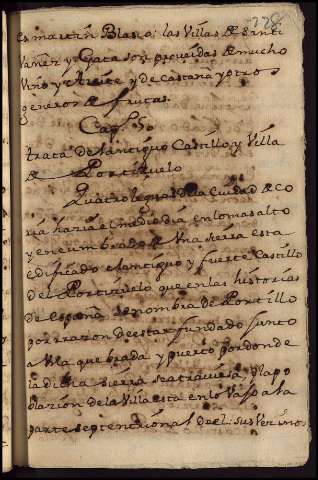 228
es martin Blasco; las Villas de Santi
vañez y Gata son proveidas de mucho
Vino y Aceite y de castaña y otros
generos de frutas.
Cap. 5o
trata del antiguo Castillo y Villa
de Portizuelo
Quatro leguas de la Ciudad de Co
ria hazia el medio dia en lo mas alto
y encumbrado de Una sierra esta
edificado el antiguo y fuerte Castillo
del Portizuelo que en las historias
de España se nombra de Portillo
por razon de estar fundado junto
a Una quebrada y puerto por donde
la dicha sierra se atraviesa. la po
blazion de la Villa esta en lo Vajo a la
parte septentrional de el: sus Vezinos